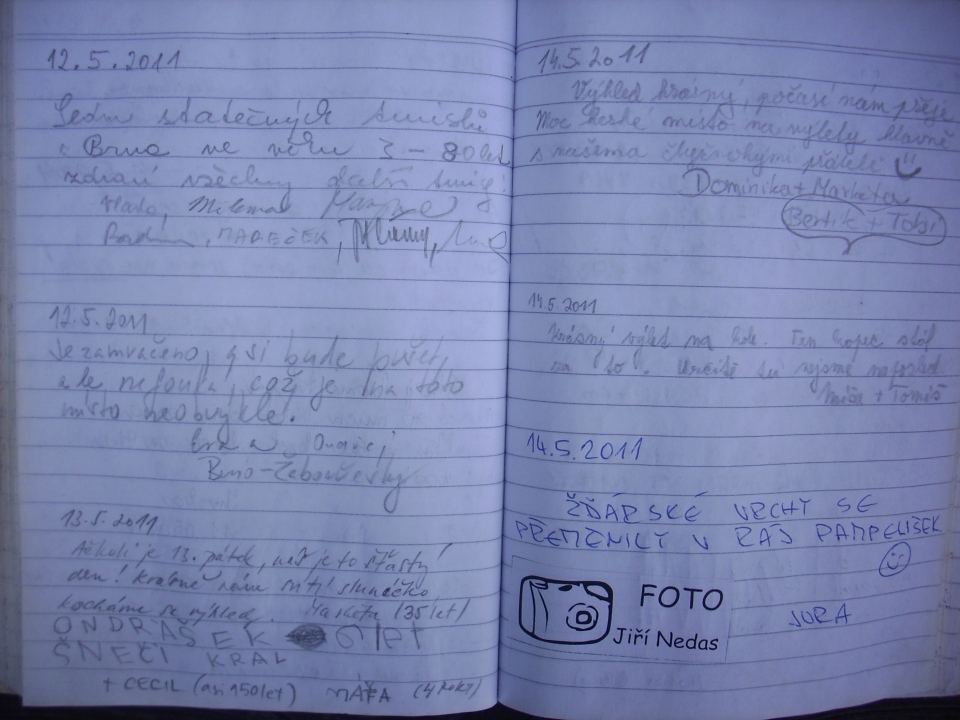 12.5.2011
Sedm statečných turistů
z Brna ve věku 3 – 80 let
zdraví všechny další
Vlasta, Milena
Radim, MAREČEK,
12.5.2011
Je zamračeno, asi bude pršet,
ale nefouká, což je na toto
místo neobvyklé.
Eva a Ondřej
Brno-Žebětín
13.5.2011
Ačkoli je 13. pátek, náš je to šťastný
den! Krásně nám svítí sluníčko,
kocháme se výhled. Markéta (35 let)
ONDRÁŠEK 6 let
ŠNEČÍ KRÁL
+ CECIL (asi 150 let) MÁŤA (4 ROKY)
14.5.2011
Výhled krásný, počasí nám přeje.
Moc hezké místo na výlety hlavně
s našima čtyřnohými přáteli
Dominika + Markéta
Bertík + Tobi
14.5.2011
Krásný výlet na kole. Ten kopec stál
za to. Určitě tu nejsme naposled
Míša + Tomáš
14.5.2011
ŽĎÁRSKÉ VRCHY SE
PŘEMĚNILY V RÁJ PAMPELIŠEK
JURA
FOTO
Jiří Nedas